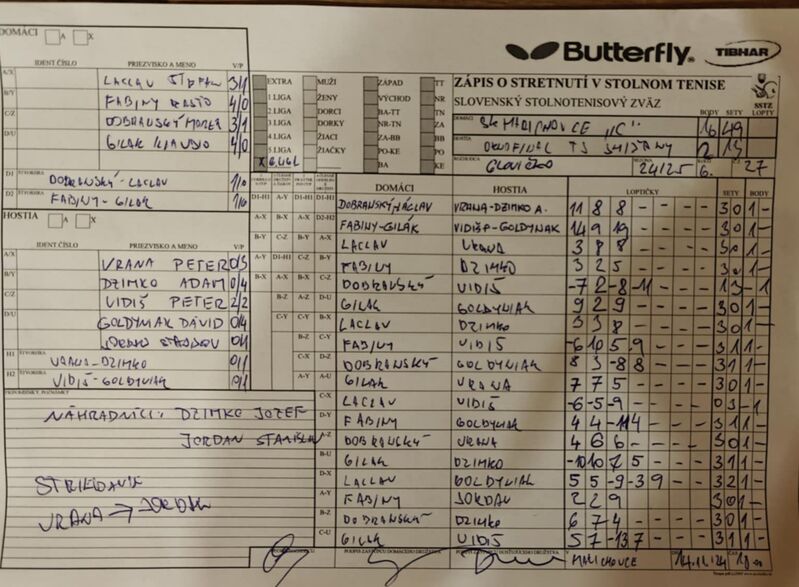 Butterfly TIBHAR
DOMÁCI A X
IDENT ČÍSLO PRIEZVISKO A MENO V/P
A/X LACLAV ŠTEFAN 3/1
B/Y FABINY RASTO 4/0
C/Z DOBRANSKÝ MAREK 3/1
D/U GILAK KLAUDIO 4/0
D1 ŠTVORHRA DOBRANSKÝ-LACLAV 1/0
D2 FABINY-GILAK 1/0
HOSTIA A X
IDENT ČÍSLO PRIEZVISKO A MENO V/P
A/X VRANA PETER 0/3
B/Y DZIMKO ADAM 0/4
C/Z VIDIŠ PETER 2/2
D/U GOLDYNIAK DÁVID 0/4
JORDAN 0/1
H1 ŠTVORHRA VRANA-DZIMKO 0/1
H2 ŠTVORHRA VIDIŠ-GOLDYNIAK 0/1
PRIPOMIENKY, POZNÁMKY
NÁHRADNÍCI: DZIMKO JOZEF
JORDAN STANISLAV
STRIEDANIE
VRANA → JORDAN
EXTRA MUŽI ZÁPAD TT
1 LIGA ŽENY VÝCHOD NR
2 LIGA DORCI BA-TT TN
3 LIGA DORKY NR-TN ZA
4 LIGA ŽIACI ZA-BB BB
5 LIGA ŽIAČKY PO-KE PO
X 6. LIGA BA KE
ZÁPIS O STRETNUTÍ V STOLNOM TENISE
SLOVENSKÝ STOLNOTENISOVÝ ZVÄZ SSTZ
BODY SETY LOPTY
DOMÁCI "C" 16 49
HOSTIA TJ 2 13
ROZHODCA SEZÓNA 24/25 6. 27
DOMÁCI HOSTIA LOPTIČKY SETY BODY
D1-H1 A-Y D1-H1 D1-H1 DOBRANSKÝ LACLAV VRANA-DZIMKO A. 11 8 8 - - - - 3 0 1 -
A-X B-X D2-H2 FABINY-GILÁK VIDIŠ-GOLDYNIAK 14 9 19 - - - - 3 0 1 -
B-Y C-Z B-Y A-X LACLAV VRANA 3 8 8 - - - - 3 0 1 -
A-Y D1-H1 C-Z B-Y FABINY DZIMKO 3 2 5 - - - - 3 0 1 -
B-X A-X C-Z DOBRANSKÝ VIDIŠ -7 2 -8 -11 - - - 1 3 - 1
B-Z A-Z D-U GILAK GOLDYNIAK 9 2 9 - - - - 3 0 1 -
C-Y B-X LACLAV DZIMKO 3 3 8 - - - - 3 0 1 -
B-Z C-Y FABINY VIDIŠ -6 10 5 9 - - - 3 1 1 -
C-X D-Z DOBRANSKÝ GOLDYNIAK 8 3 -8 8 - - - 3 1 1 -
A-Y A-U GILAK VRANA 7 7 5 - - - - 3 0 1 -
C-X LACLAV VIDIŠ -6 -5 -9 - - - - 0 3 - 1
D-Y FABINY GOLDYNIAK 4 4 -11 4 - - - 3 1 1 -
A-Z DOBRANSKÝ VRANA 4 6 6 - - - - 3 0 1 -
B-U GILAK DZIMKO -10 10 7 5 - - - 3 1 1 -
D-X LACLAV GOLDYNIAK 5 5 -9 -3 9 - - 3 2 1 -
A-Y FABINY JORDAN 2 2 9 - - - - 3 0 1 -
B-Z DOBRANSKÝ DZIMKO 6 7 4 - - - - 3 0 1 -
C-U GILAK VIDIŠ 5 7 -13 7 - - - 3 1 1 -
PODPIS ZÁSTUPCU DOMÁCEHO DRUŽSTVA PODPIS ZÁSTUPCU HOSŤUJÚCEHO DRUŽSTVA V 14.11.24 ČAS